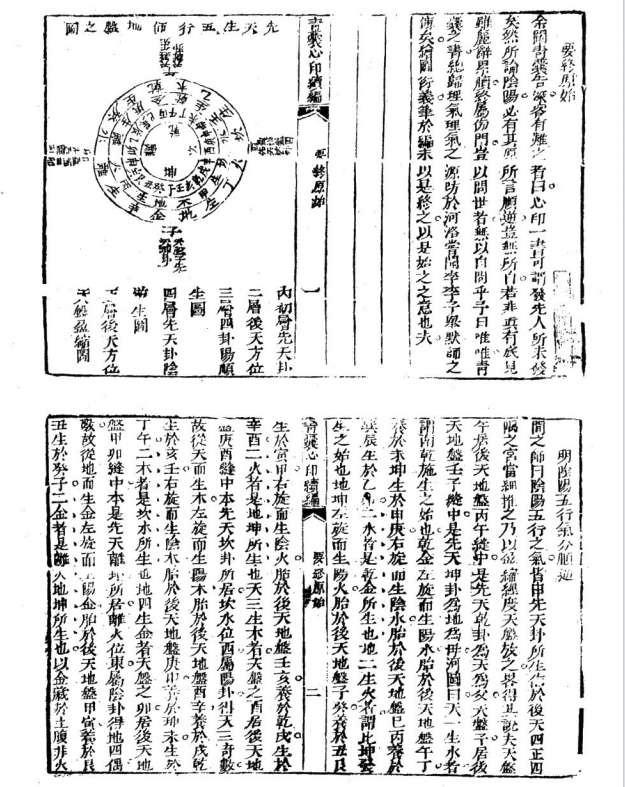 要終原始
余闢青囊告深客有難之者曰心印一書可謂發先人所未發
矣然所論陰陽必有其原所言順逆豈無所自若非真有底見
雖麗辭累牘終屬傍門豈以問世者無以自問乎予曰唯唯青
囊之書總歸理氣理氣之源昉於河洛嘗聞李子與默誦之
傳矣圖衍義筆於編末以是終之以是始之之意也夫
青囊心印續編
要終原始
一
先天生五行佈地盤之圖
內初層先天卦
二層後天方位
三層四卦陽順
生圖
四層先天卦陰
逆生圖
五層後天方位
六層盈縮圖
明陰陽五行氣分順逆
聞之師曰陰陽五行之氣皆由先天卦所生佈於後天四正四
隅之宮當細推之乃以盈縮經度天盤放之畧得其說夫天盤
午居後天地盤丙午縫中是先天乾卦為天為父天盤子居後
天地盤壬子縫中是先天坤卦為地為母河圖曰天一生水者
謂南乾施生之始也乾金左旋而生陽水胎於後天地盤午丁
養於未坤生於甲庚右旋而生陰水胎於後天地盤巳丙養於
巽辰生於乙卯二水者是乾金所生也地二生火者謂北坤發
生之始也地坤左旋而生陽火胎於後天地盤子癸養於丑艮
青囊心印續編
要終原始
二
生於寅甲右旋而生陰火胎於後天地盤壬亥養於乾戌生於
辛酉二火者是地坤所生也天三生木者天盤之酉居後天地
盤庚酉縫中本先天坎卦所居坎水位西屬陽卦得天三奇數
故從天而生木左旋而生陽木胎於後天地盤酉辛養於戌乾
生於亥壬右旋而生陰木胎於後天地盤庚申養於坤未生於
丁午二木者是坎水所生也地四生金者天盤之卯居後天地
盤甲卯縫中本是先天離卦所居離火位東屬陰卦得地四偶
數故從地而生金左旋而生陽金胎於後天地盤甲寅養於艮
丑生於癸子二金者是離火地坤所生也以金藏於土腹非火